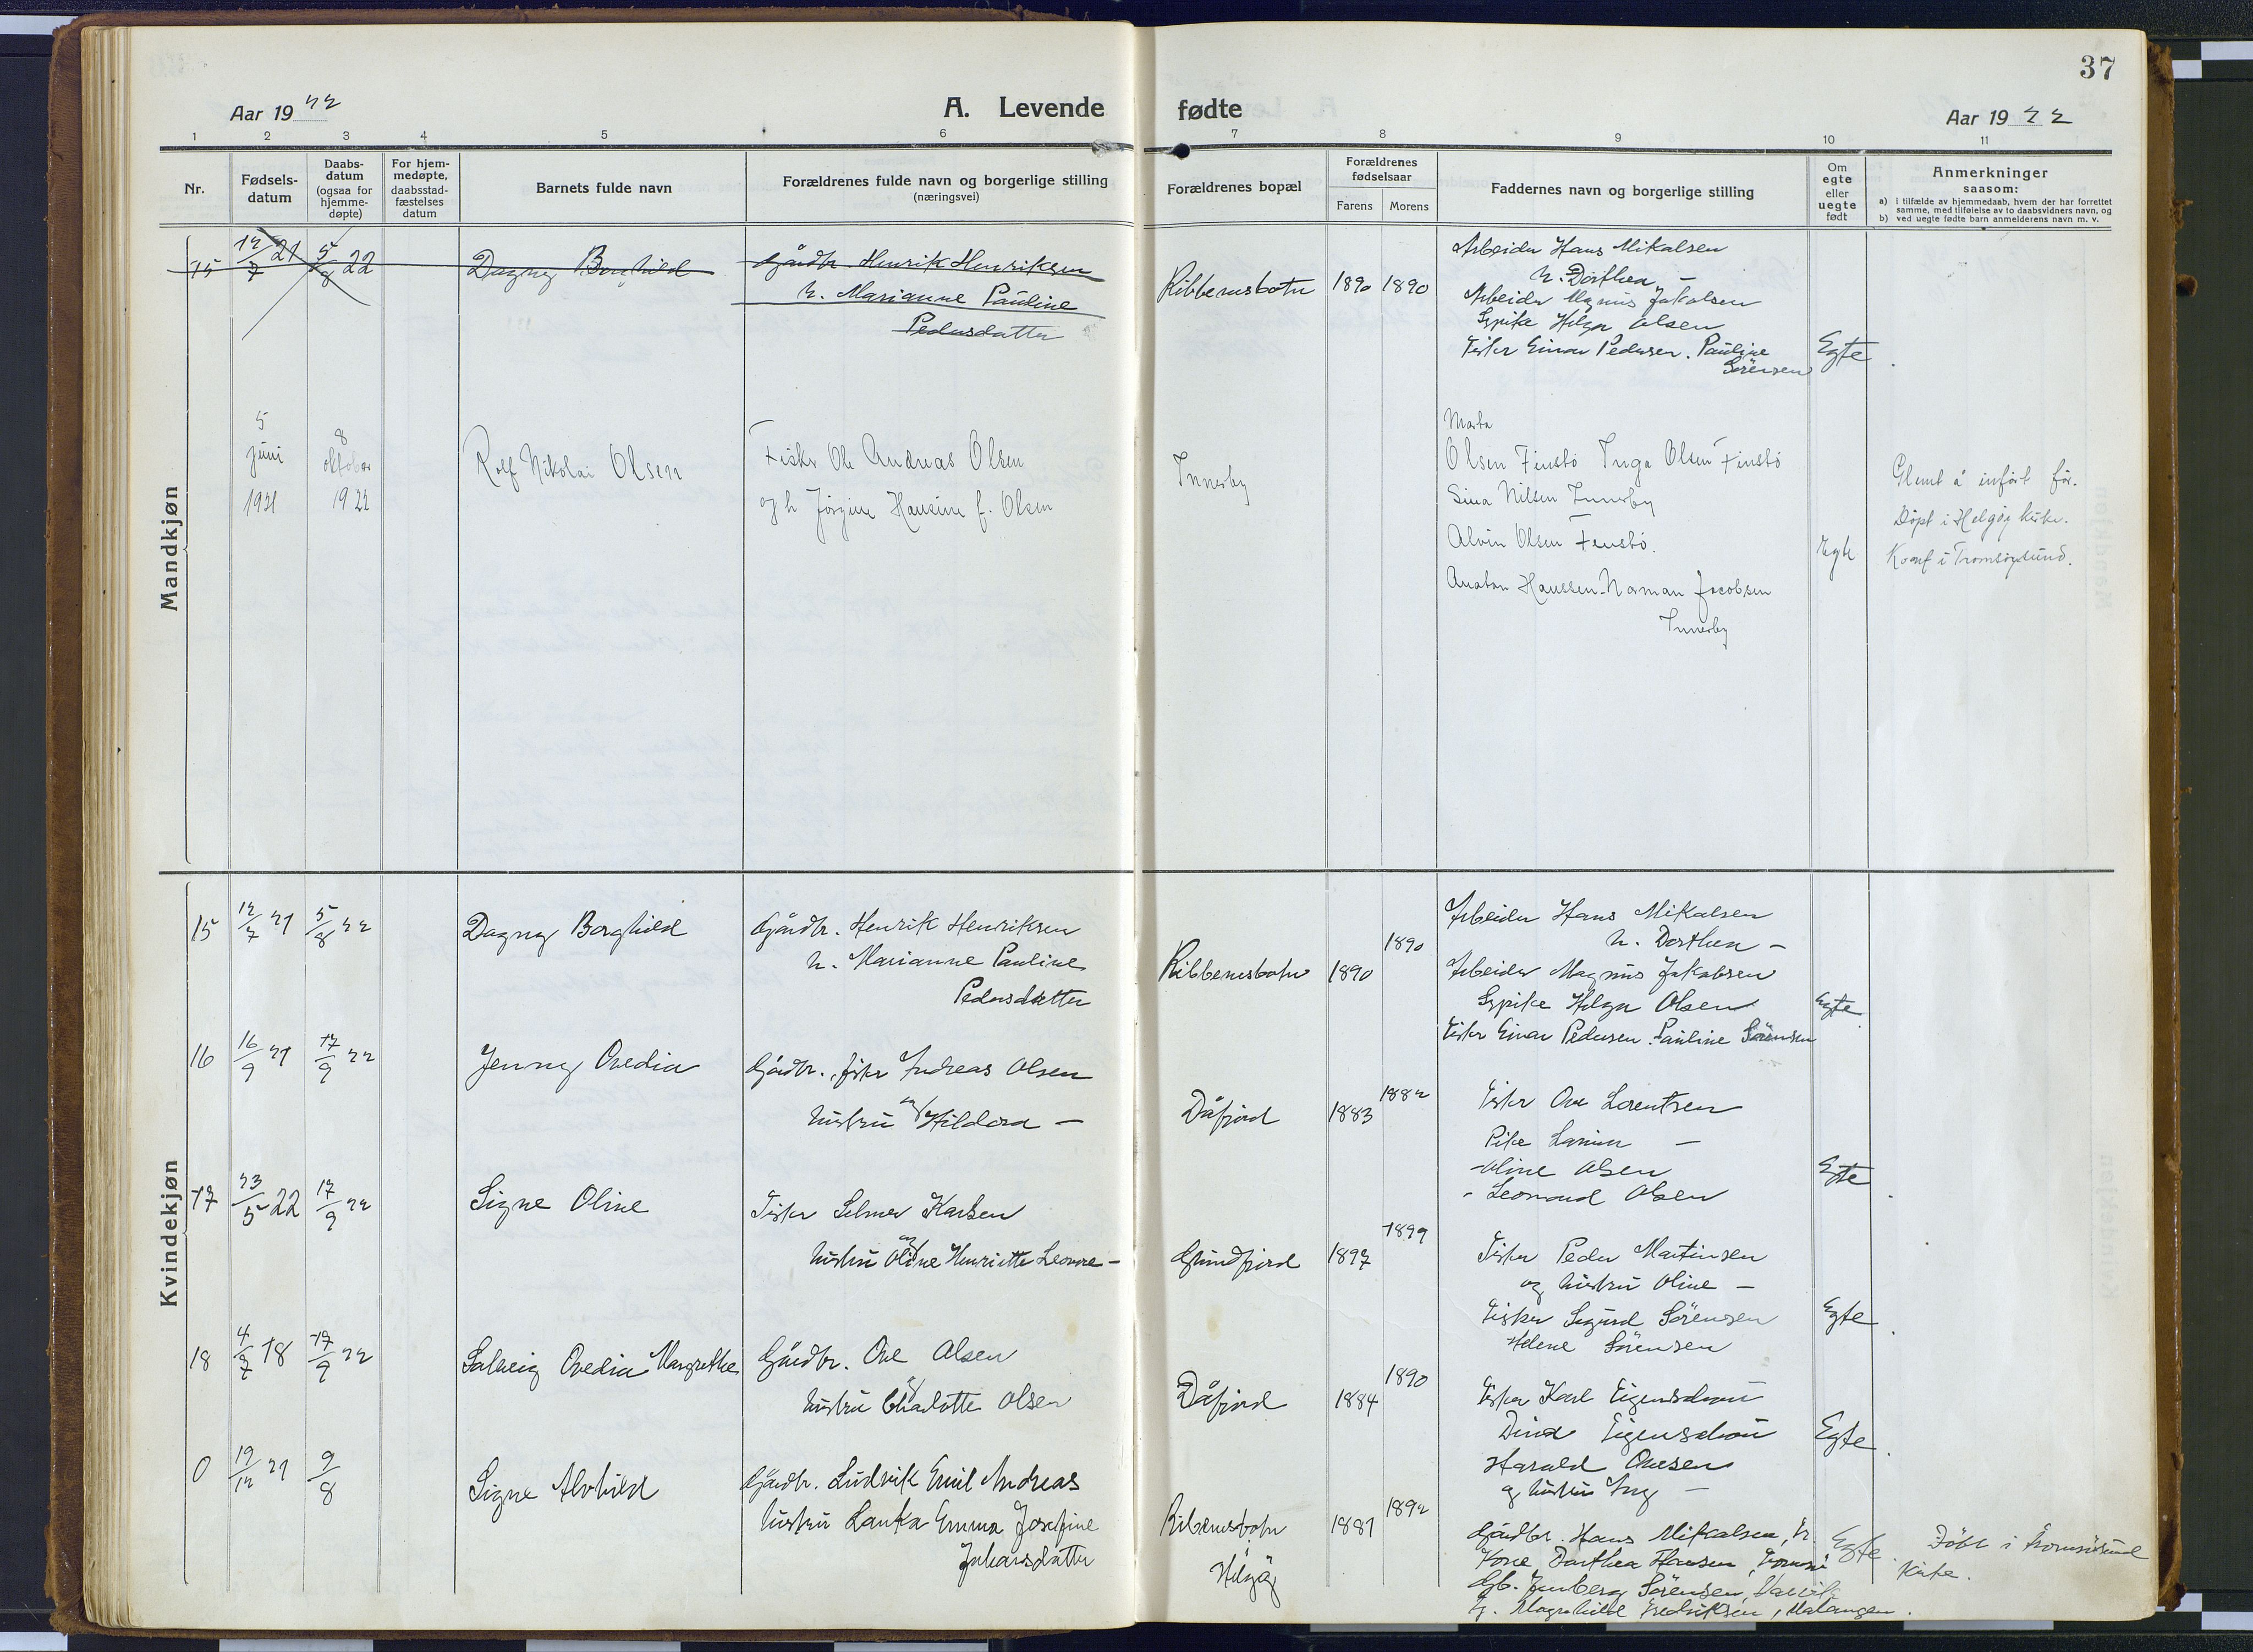 37
Aar 1922
A. Levende fødte
Aar 1922
1 2 3 4 5 6 7 8 9 10 11
Nr.
Fødsels-
datum
Daabs-
datum
(ogsaa for
hjemme-
døpte)
For hjem-
medøpte,
daabsstad-
fæstelses
datum
Barnets fulde navn
Forældrenes fulde navn og borgerlige stilling
(næringsvei)
Forældrenes bopæl
Forældrenes
fødselsaar
Farens Morens
Faddernes navn og borgerlige stilling
Om
egte
eller
uegte
født
Anmerkninger
saasom:
a) i tilfælde av hjemmedaab, hvem der har forrettet
samme, med tilføielse av to daabsvidners navn, og
b) ved uegte fødte barn anmelderens navn m. v.
Mandkjøn
15 12/7 21 5/8 22 Dagny Borghild
Gårdbr. Henrik Henriksen
h. Marianne Pauline
Pedersdatter
Ribbenesbotn 1890 1890
Arbeider Hans Mikalsen
h. Dorthea –
Arbeider Magnus Jakobsen
Pike Helga Olsen
Fisker Einar Pedersen. Pauline
Sörensen
Egte
5
juni
1921
8
oktober
1922
Rolf Nikolai Olsen
Fisker Ole Andreas Olsen
og h Jörgine Hansine f. Olsen
Innerby
Marta
Olsen Finsbö Inga Olsen Finsbö
Sina Nilsen Innerby
Alvin Olsen Finsbö.
Anaton Hanssen. Norman Jacobsen
Innerby
Egte
Glemt å infört för.
Döpt i Helgöy kirke.
Konf i Tromsöysund.
Kvindekjøn
15 12/7 21 5/8 22 Dagny Borghild
Gårdbr. Henrik Henriksen
h. Marianne Pauline
Pedersdatter
Ribbenesbotn 1890 1890
Arbeider Hans Mikalsen
h. Dorthea –
Arbeider Magnus Jakobsen
Pike Helga Olsen
Fisker Einar Pedersen. Pauline Sörensen
Egte
16 16/9 21 17/9 22 Jenny Ovedia
Gårdbr., fisker Andreas Olsen
og
hustru Hildora –
Dåfjord 1883 1882
Fisker Ove Lorentsen
Pike –
– Oline Olsen
– Leonard Olsen
Egte
17 23/5 22 17/9 22 Signe Oline
Fisker Selmer Karlsen
og
hustru Oline Henriette Leonore –
Grundfjord 1897 1899
Fisker Peder Martinsen
og hustru Oline –
Fisker Sigurd Sörensen
Helene Sörensen
Egte
18 4/7 18 17/9 22 Solveig Ovedia Margrethe
Gårdbr. Ove Olsen
og
hustru Charlotte Olsen
Dåfjord 1884 1890
Fisker Karl Eigensdom
Dina Eigensdom
Harald Ovesen
og hustru Ing –
Egte
0 19/12 21 9/8 Signe Alvhild
Gårdbr. Ludvik Emil Andreas
hustru Lanka Emma Josefine
Johansdatter
Ribenesbotn
i
Helgöy
1881 1892
Gårdbr. Hans Mikalsen, h.
Kone Dorthea Hansen, Tromsö
Gb. Jenberg Sörensen,
Magnhild Fredriksen, Malangen.
Egte
Döbt i Tromsösund
kirke.